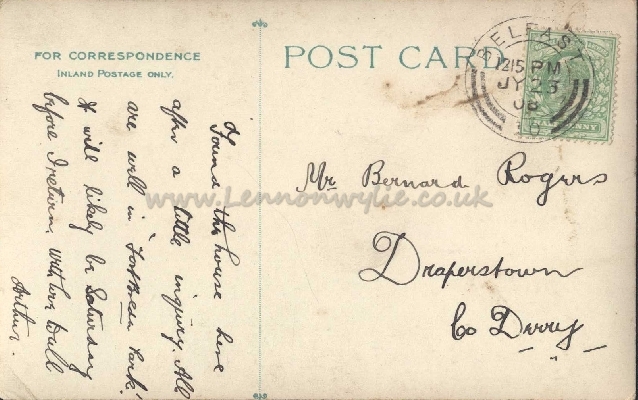 FOR CORRESPONDENCE
INLAND POSTAGE ONLY.
POST CARD
BELFAST
12 15 PM
JY 23
08
Found this house here
after a little inquiry. All
are well in Park.
It will likely be Saturday
before I return, with love to all
Arthur.
Mr Bernard Rogers
Draperstown
Co Derry
www.Lennonwylie.co.uk